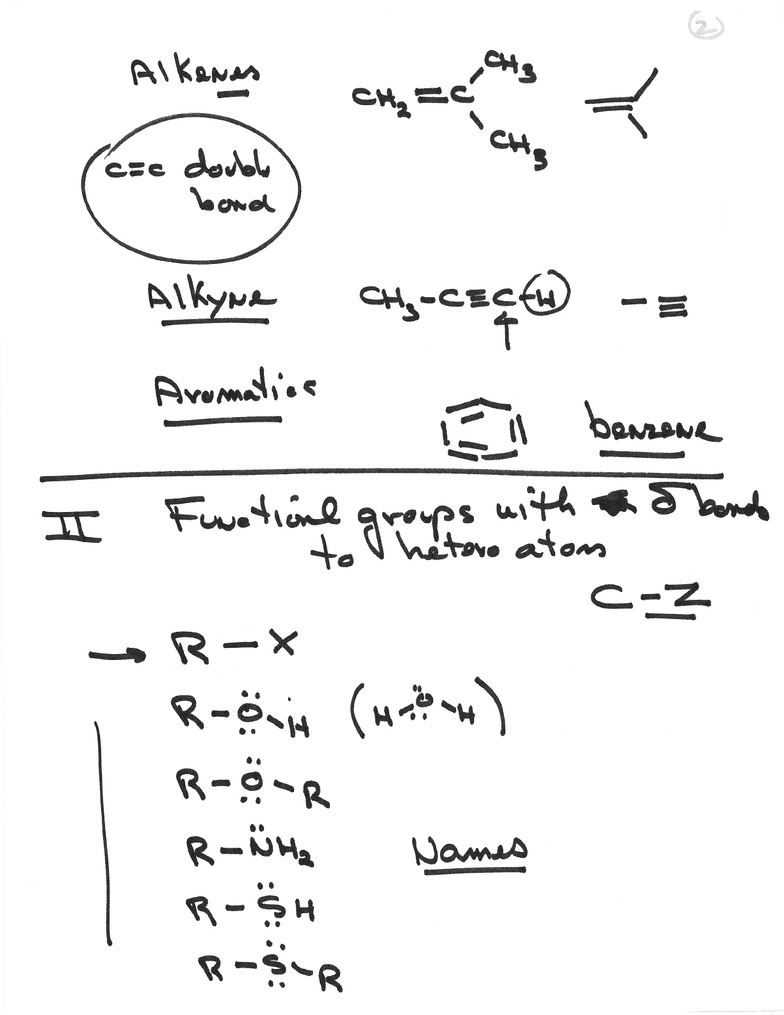 2
Alkenes
CH2=C
CH3
CH3
C=C double
bond
Alkyne CH3-C≡C-H
Aromatics
benzene
II Functional groups with σ bonds
to hetero atoms
C-Z
→ R-X
R-O-H (H-O-H)
R-O-R
R-NH2 Names
R-SH
R-S-R